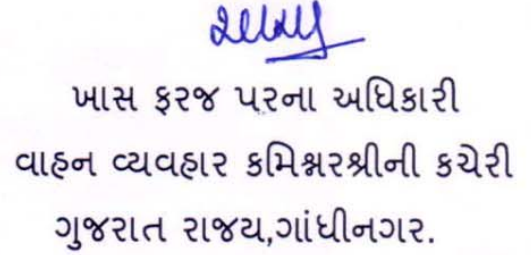 ખાસ ફરજ પરના અધિકારી
વાહન વ્યવહાર કમિશ્નરશ્રીની કચેરી
ગુજરાત રાજય,ગાંધીનગર.